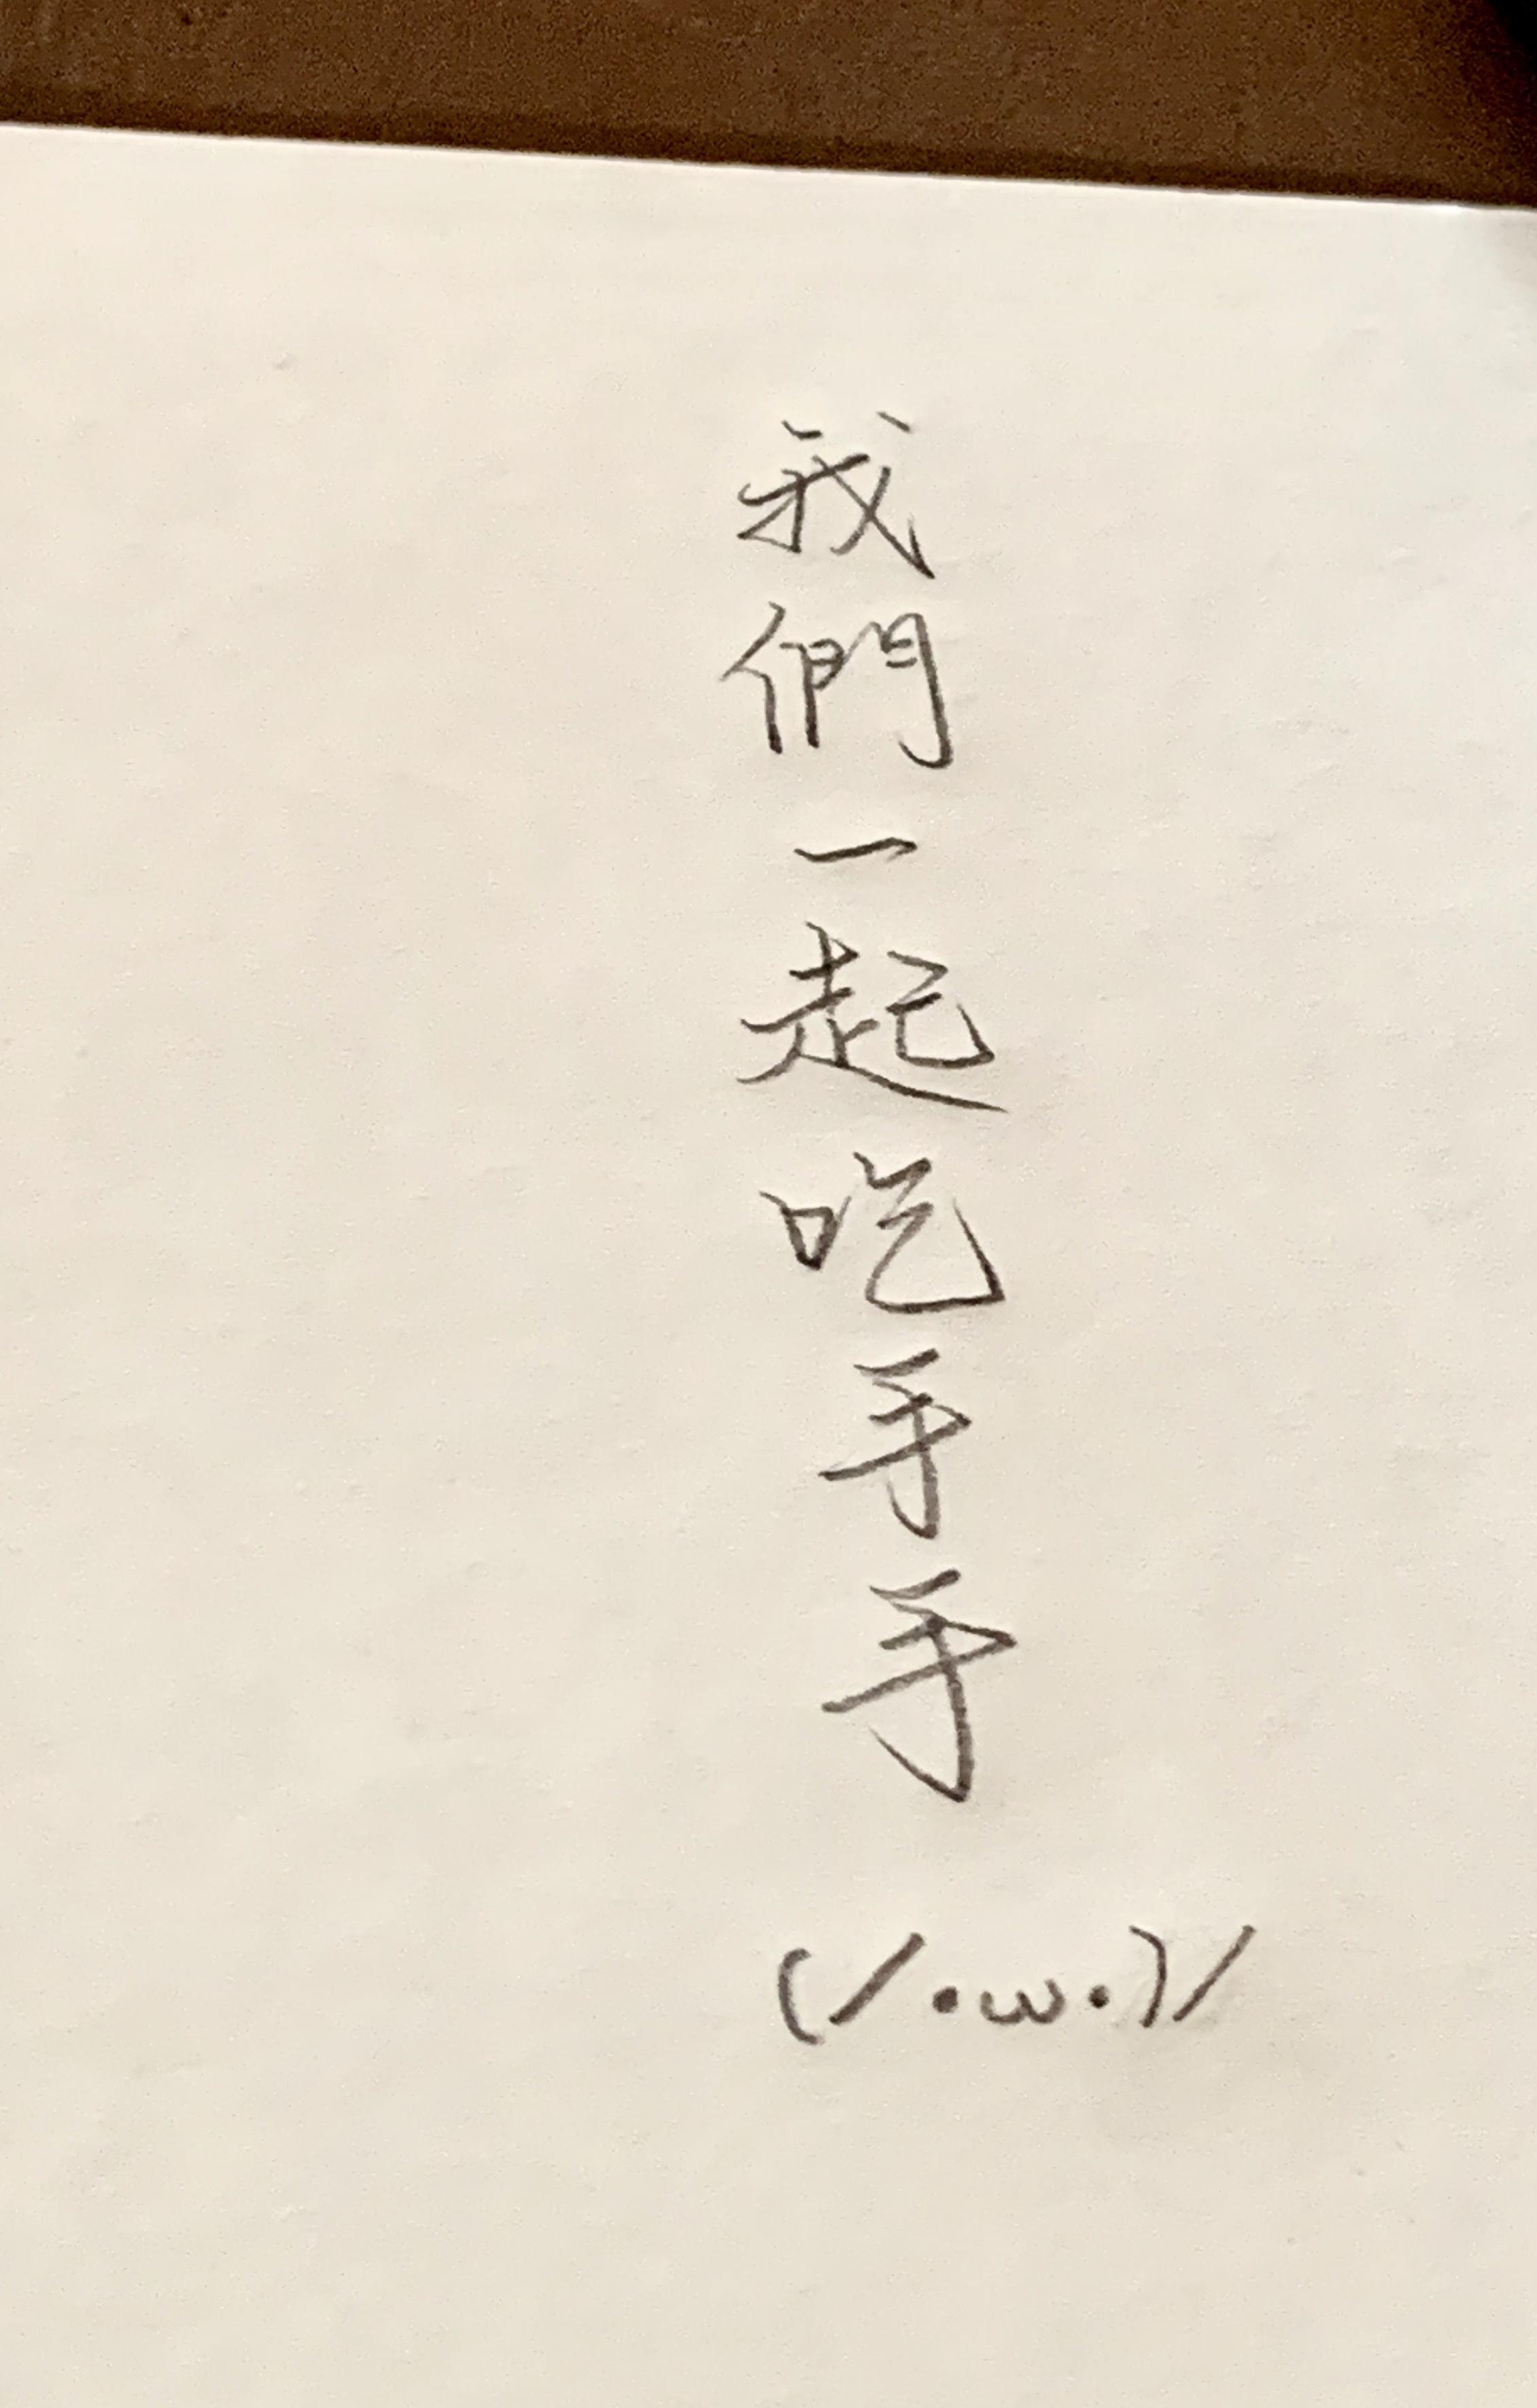 我們一起吃手手
(/・ω・)/